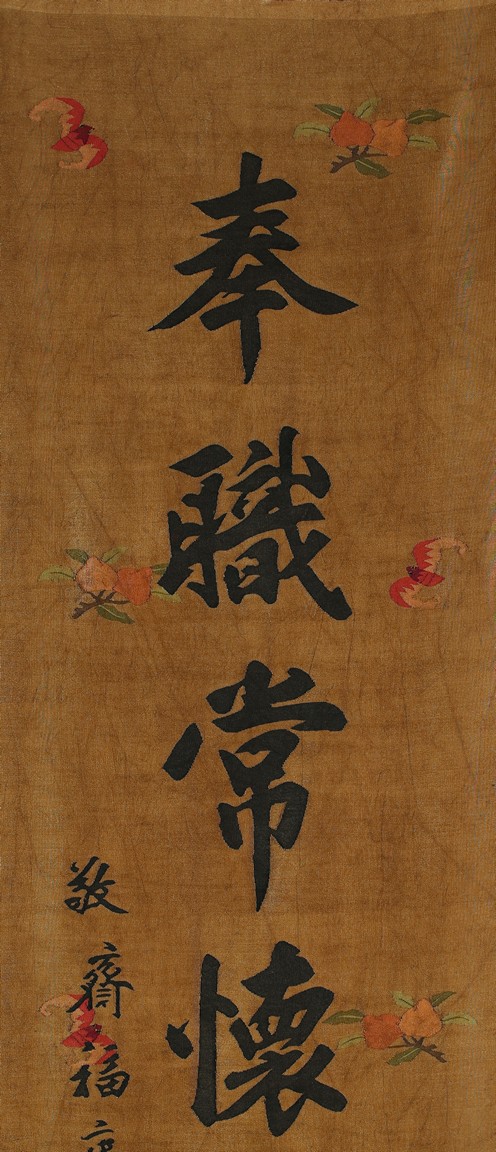 奉職常懷
敬齋福